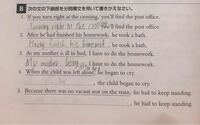 B 次の文の下線部を分詞構文を用いて書きかえなさい。
1. If you turn right at the crossing, you'll find the post office.
Turning right at the crossing, you'll find the post office.
2. After he had finished his homework, he took a bath.
Having finish his homework, he took a bath.
3. As my mother is ill in bed, I have to do the housework.
My mother being, I have to do the housework.
4. When the child was left alone, he began to cry.
, the child began to cry.
5. Because there was no vacant seat on the train, he had to keep standing.
, he had to keep standing.